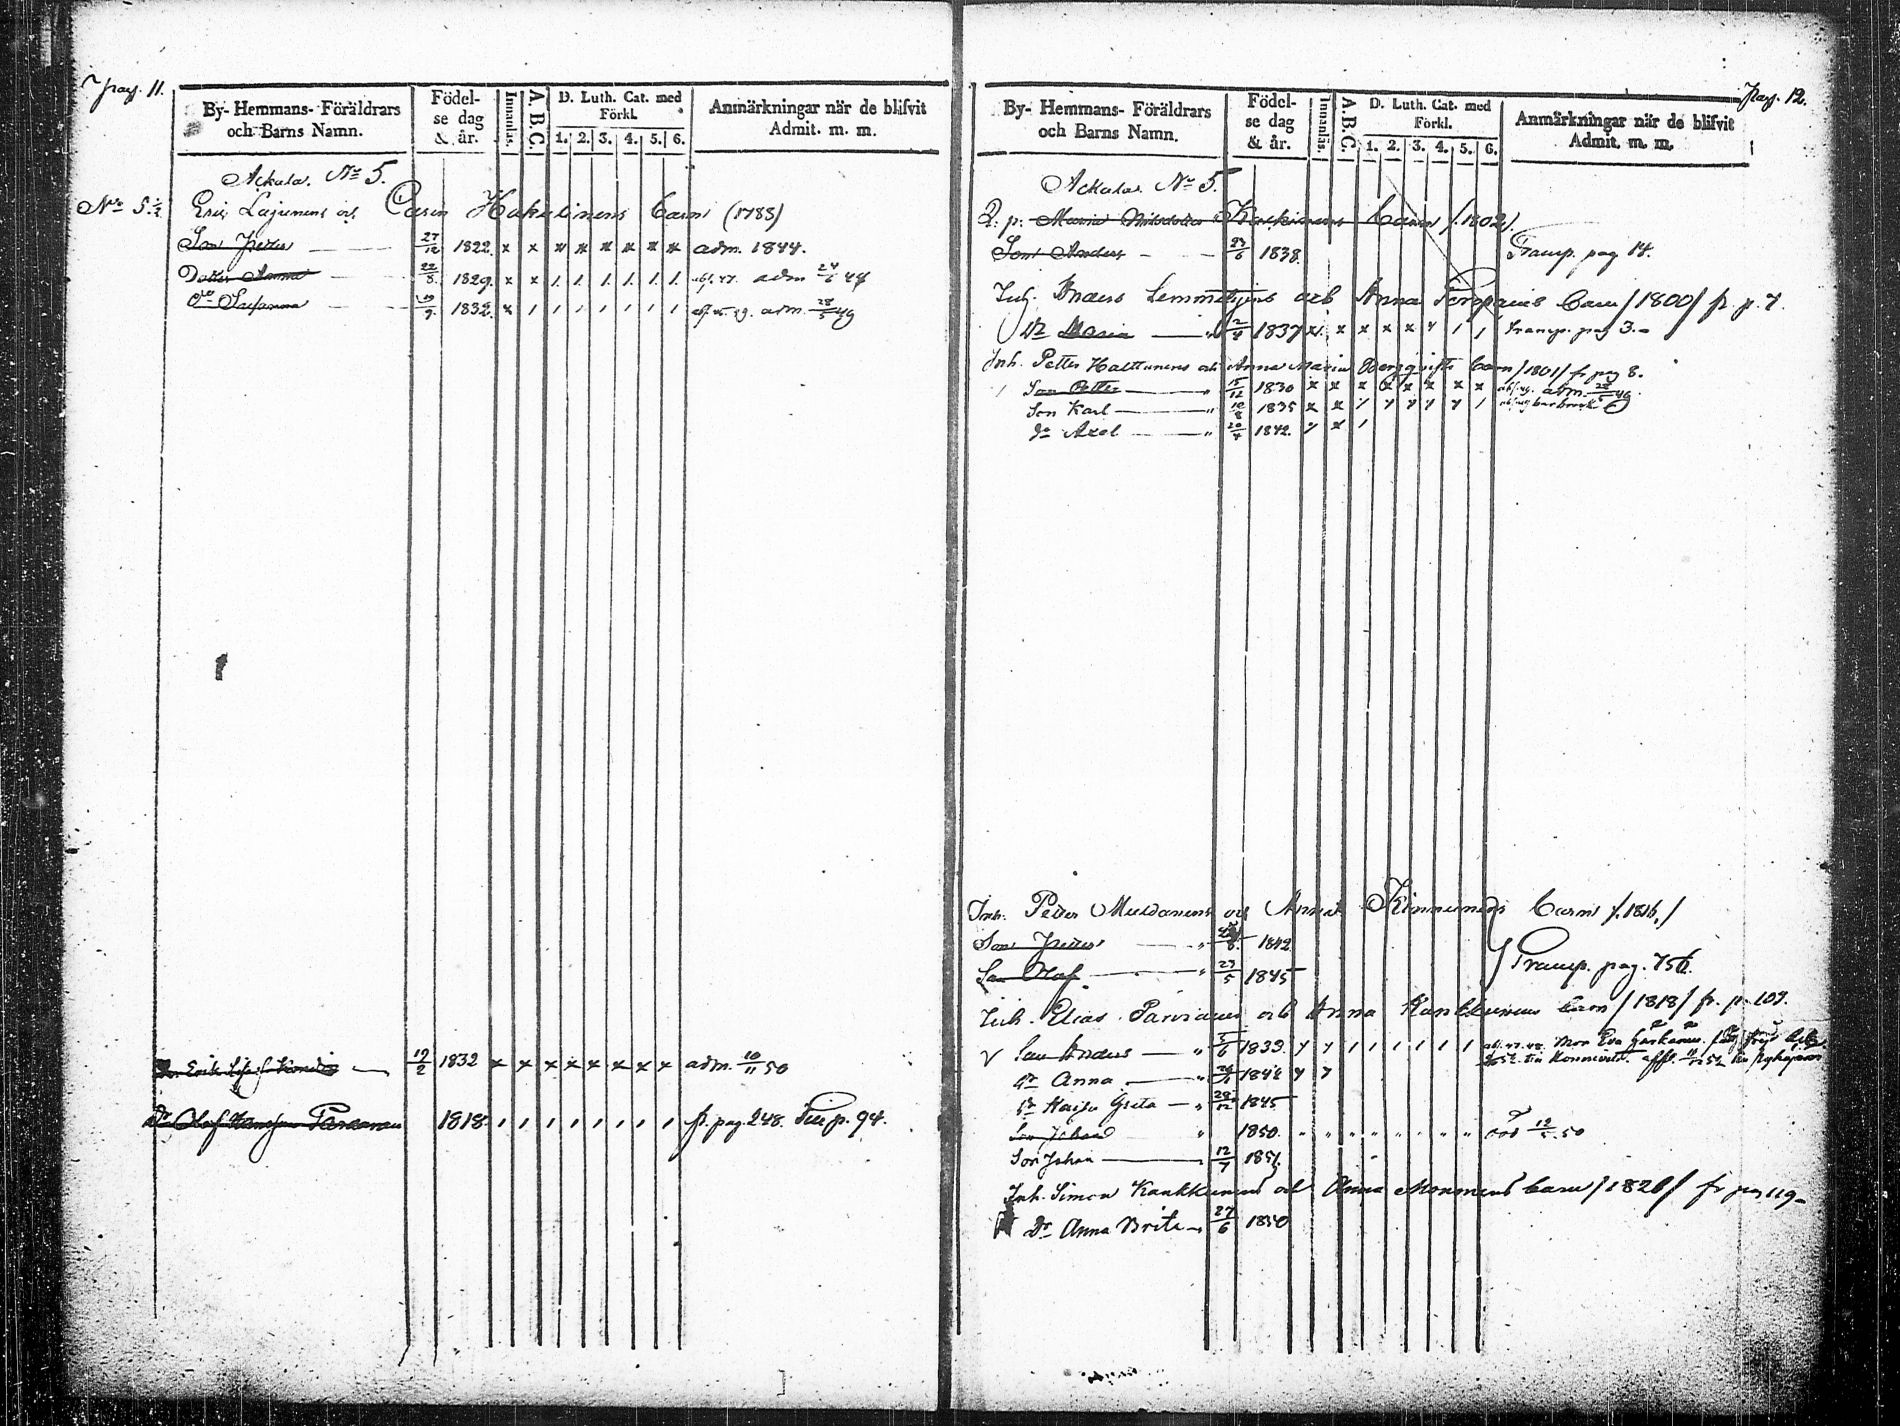 pag. 11.
By- Hemmans- Föräldrars och Barns Namn.
Födelse dag & år.
Innanläs.
A. B. C.
D. Luth. Cat. med Förkl.
1. 2. 3. 4. 5. 6.
Anmärkningar när de blifvit Admit. m. m.
Ackala. No 5.
No 5.½ Eric Lajunens och Carin Hakulinens barn (1785)
Son Petter 27/12 1822. x x x x x x x x adm. 1844.
Dotter Anna 22/8 1829. x x 1. 1. 1. 1. 1. 1. adm 24/6 48
Do Susanna 1832. x 1 1 1 1 1 1 1 adm. 28/5 49
19/2 1832 x x x x x x x x adm. 10/11 50
Dr Olof Hansson 1818. 1 1 1 1 1 1 1 1 fr. pag. 248. Till p. 94.
pag. 12.
By- Hemmans- Föräldrars och Barns Namn.
Födelse dag & år.
Innanläs.
A. B. C.
D. Luth. Cat. med Förkl.
1. 2. 3. 4. 5. 6.
Anmärkningar när de blifvit Admit. m. m.
Ackala. No 5.
Q. p. Maria Nilsdotter barn /1802/.
Son Anders 23/6 1838. Transp. pag 14.
Inh. Anders Lemmettyins och Anna barn /1800/ fr. p. 7.
Dr Maria 2/4 1837 x x x x x y 1 1 transp. pag 3.
Inh. Petter Halttunens och Anna Maria Bergqvists barn /1801/ fr pag 8.
Son Petter 15/12 1830 x x x x x x x x adm. 28/5 49
Son Karl 10/8 1835 x x y y y y y 1
do Axel 20/4 1842. y x 1
Inh. Peter Muldanens och Anna Kinnunens barn /.1816./
Son Petter 1842
Son Olof 23/5 1845 Transp. pag. 756.
Inh. Elias Parviainens och Anna Kankkunens barn /1818/ fr. p. 109.
Son Anders 5/6 1839. y y 1 1 1 1 1 1
dr Anna y y
dr Kaisa Greta 28/12 1845
Son Johan 1850. död 12/5 50
Son Johan 12/7 1851.
Inh. Simon Kankkunens och Anna Monnonens barn /1826/ fr pag 119
Dr Anna Brita 27/6 1850